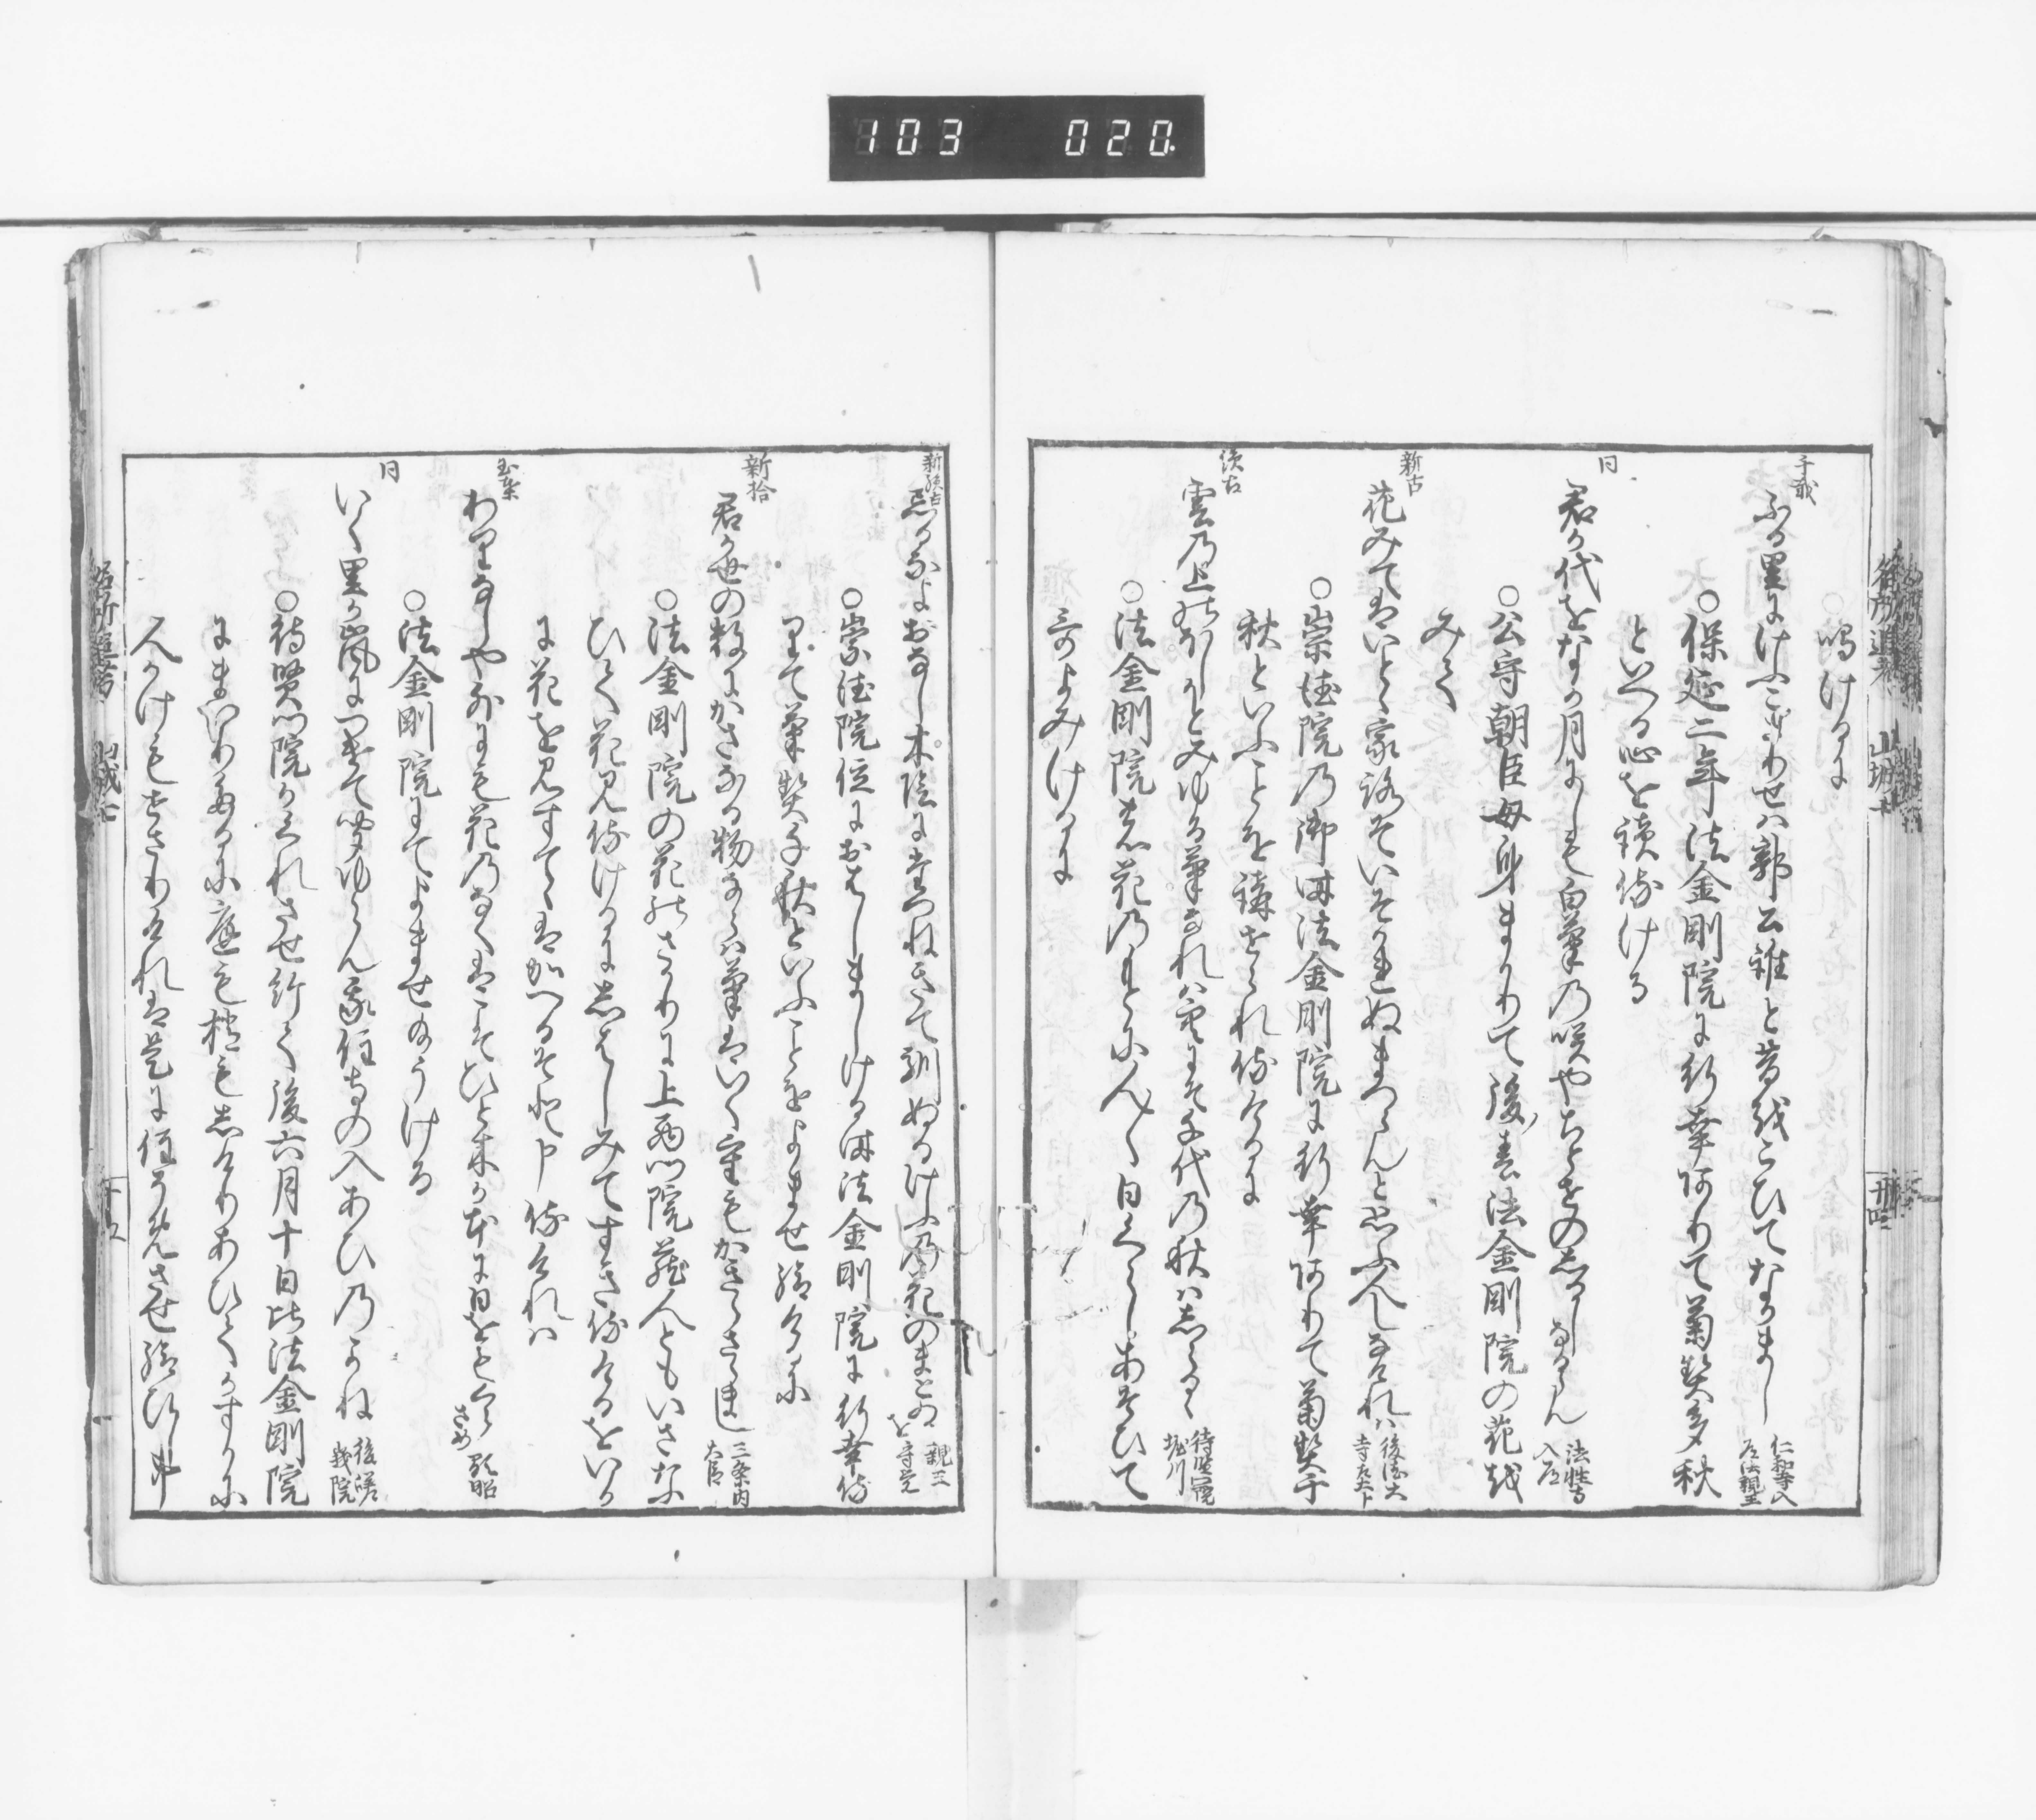 103 020
鳴けるに
千載
ふる里にけふこさりせは郭公誰と昔をこひてなかまし 仁和寺入道法親王
○保延二年法金剛院に行幸ありて菊契多秋
といへる心を読侍ける
同
君か代をなか月にしも白菊の咲やちとせのしるしなるらん 法性寺入道
○公守朝臣母身まかりて後春法金剛院の花を
みて
新古
花みてはいとゝ家路そいそかれぬまつらんと思ふ人しなけれは 後徳大寺左大臣
○崇徳院の御時法金剛院に行幸ありて菊契千
秋といふことを講せられ侍けるに
後古
雲の上のほしかとみゆる菊なれは空にそ千代の秋はしらるゝ 待賢門院堀川
○法金剛院の花のもとに人〻日くらしあそひて
哥よみけるに
新後古
忘るなよおなし木陰にたつねきて馴ぬるけふの花のまとゐを 守覚親王
○崇徳院位におはしましける時法金剛院に行幸侍
りて菊契千秋といふことをよませ給けるに
新拾
君か世の数にかさなる物ならは菊はいく重もかきらさらまし 三条内大臣
○法金剛院の花のさかりに上西門院蔵人ともいさな
ひて花見侍けるにしはしみてすき侍けるをいか
に花を見すてゝはかへるそと申侍けれは
玉葉
わりなしや外にも花のなくはこそひと木か本に日をもくらさめ 顕昭
○法金剛院にてよませ給うける
同
いく里か嵐につけて聞ゆらん我住寺の入あひのかね 後嵯峨院
○待賢門院かくれさせ給て後六月十日比法金剛院
にまいりたるに庭も梢もしけりあひてかすかに
人かけもせさりけれは是に住そめさせ給ひし事